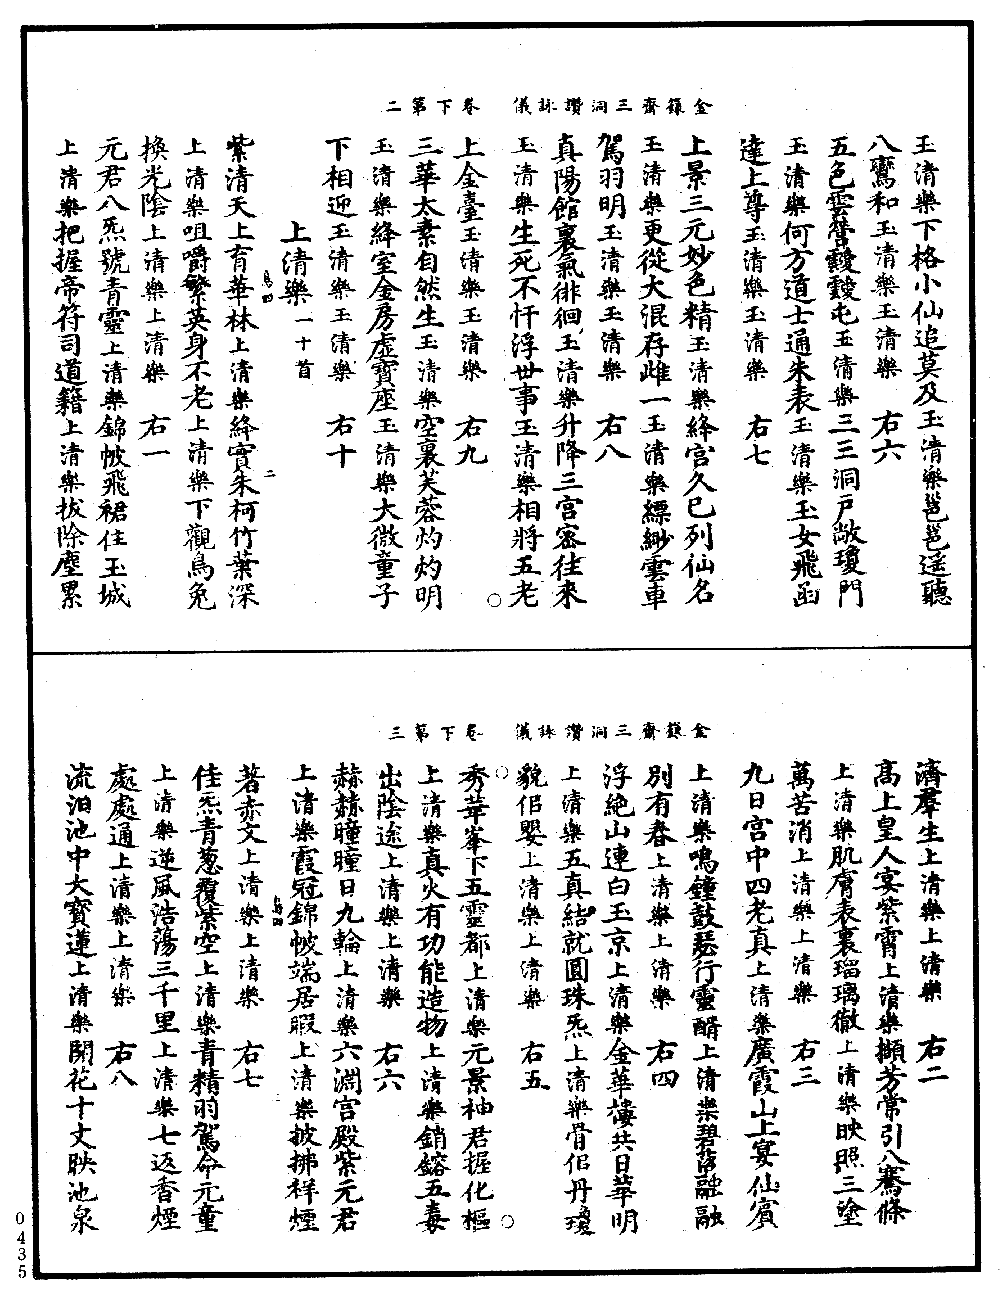 金籙齋三洞讚詠儀　卷下第二
玉清樂下格小仙追莫及玉清樂邕邕遥聽
八鸞和玉清樂玉清樂　右六
五色雲營靉靆屯玉清樂三三洞戶敞瓊門
玉清樂何方道士通朱表玉清樂玉女飛函
達上尊玉清樂玉清樂　右七
上景三元妙色精玉清樂絳宮久已列仙名
玉清樂更從大混存雌一玉清樂縹緲雲車
駕羽明玉清樂玉清樂　右八
真陽館裏氣徘徊玉清樂升降三宮密往來
玉清樂生死不忓浮世事玉清樂相將五老
上金臺玉清樂玉清樂　右九
三華太素自然生玉清樂空裏芙蓉灼灼明
玉清樂絳室金房虛寶座玉清樂大微童子
下相迎玉清樂玉清樂　右十
上清樂一十首
紫清天上育華林上清樂絳實朱柯竹葉深
上清樂咀嚼繁英身不老上清樂下觀烏兔
換光陰上清樂上清樂　右一
元君八炁號青靈上清樂錦帔飛裙住玉城
上清樂把握帝符司道籍上清樂拔除塵累
金籙齋三洞讚詠儀　卷下第三
濟羣生上清樂上清樂　右二
高上皇人宴紫霄上清樂擷芳常引八騫條
上清樂肌膚表裏瑠璃徹上清樂映照三塗
萬苦消上清樂上清樂　右三
九日宮中四老真上清樂廣霞山上宴仙賓
上清樂鳴鐘鼓瑟行靈醑上清樂碧落融融
別有春上清樂上清樂　右四
浮絶山連白玉京上清樂金華樓共日華明
上清樂五真結就圓珠炁上清樂骨佀丹瓊
貌佀嬰上清樂上清樂　右五
秀華峯下五靈都上清樂元景神君握化樞
上清樂真火有功能造物上清樂銷鎔五毒
出陰途上清樂上清樂　右六
赫赫曈曈日九輪上清樂六淵宮殿紫元君
上清樂霞冠錦帔端居暇上清樂披拂祥煙
著赤文上清樂上清樂　右七
佳炁青葱覆紫空上清樂青精羽駕命元童
上清樂逆風浩蕩三千里上清樂七返香煙
處處通上清樂上清樂　右八
流汨池中大寶蓮上清樂開花十丈映池泉
0435